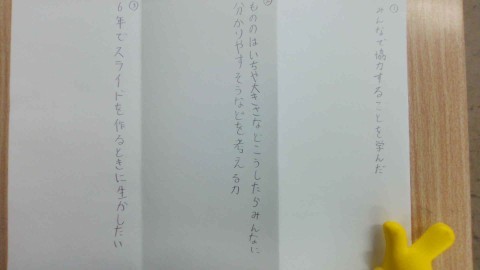 ①
みんなで協力することを学んだ
②
もののはいちや大きさなどこうしたらみんなに
分かりやすそうなどを考える力
③
6年でスライドを作るときに生かしたい